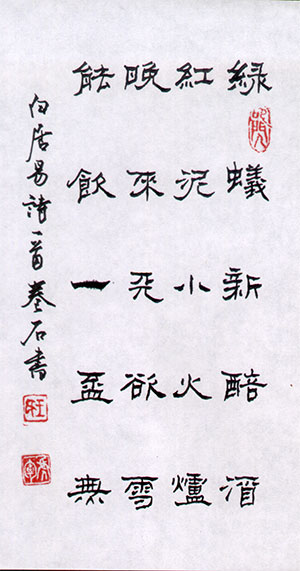 綠蟻新醅酒
紅泥小火爐
晚來天欲雪
能飲一盃無
白居易詩一首 石書